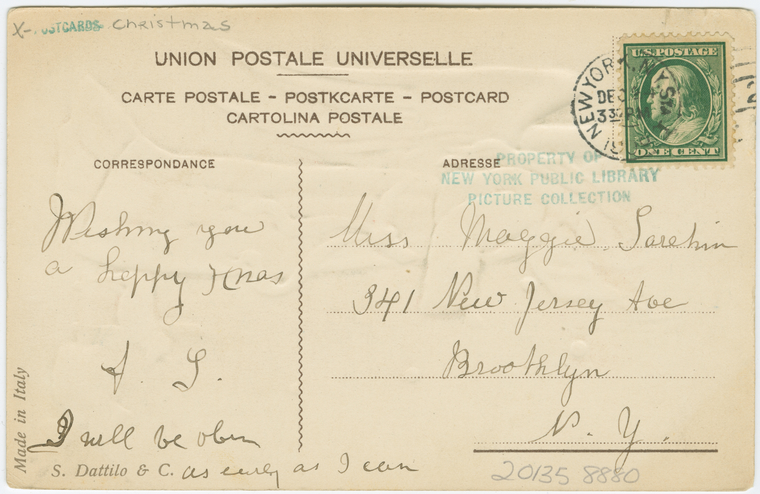 X- POSTCARDS Christmas
UNION POSTALE UNIVERSELLE
CARTE POSTALE - POSTKCARTE - POSTCARD
CARTOLINA POSTALE
CORRESPONDANCE
ADRESSE
U.S. POSTAGE
ONE CENT
NEW YORK, N.Y.
DEC
PROPERTY OF
NEW YORK PUBLIC LIBRARY
PICTURE COLLECTION
Wishing you
a heppy Xmas
I will be
as early as I can
Miss Maggie
341 New Jersey Ave
Brooklyn
N. Y.
Made in Italy
S. Dattilo & C.
20135 8880